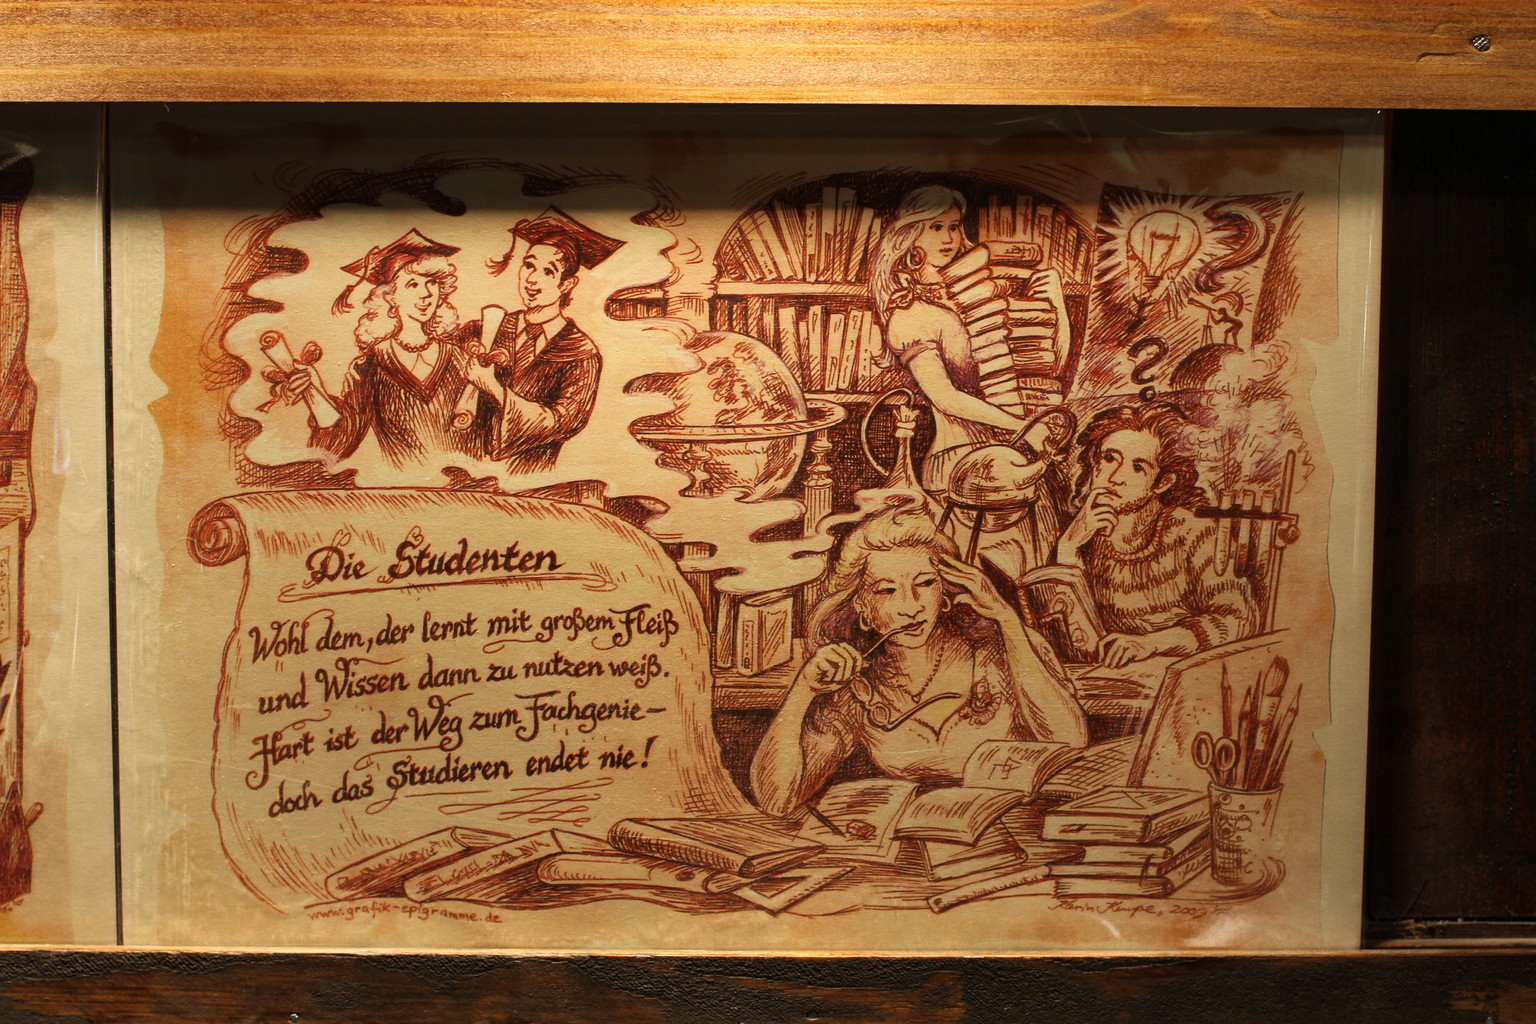 Die Studenten
Wohl dem, der lernt mit großem Fleiß
und Wissen dann zu nutzen weiß.
Hart ist der Weg zum Fachgenie –
doch das Studieren endet nie!
www.grafik-epigramme.de
Karin Kempe,